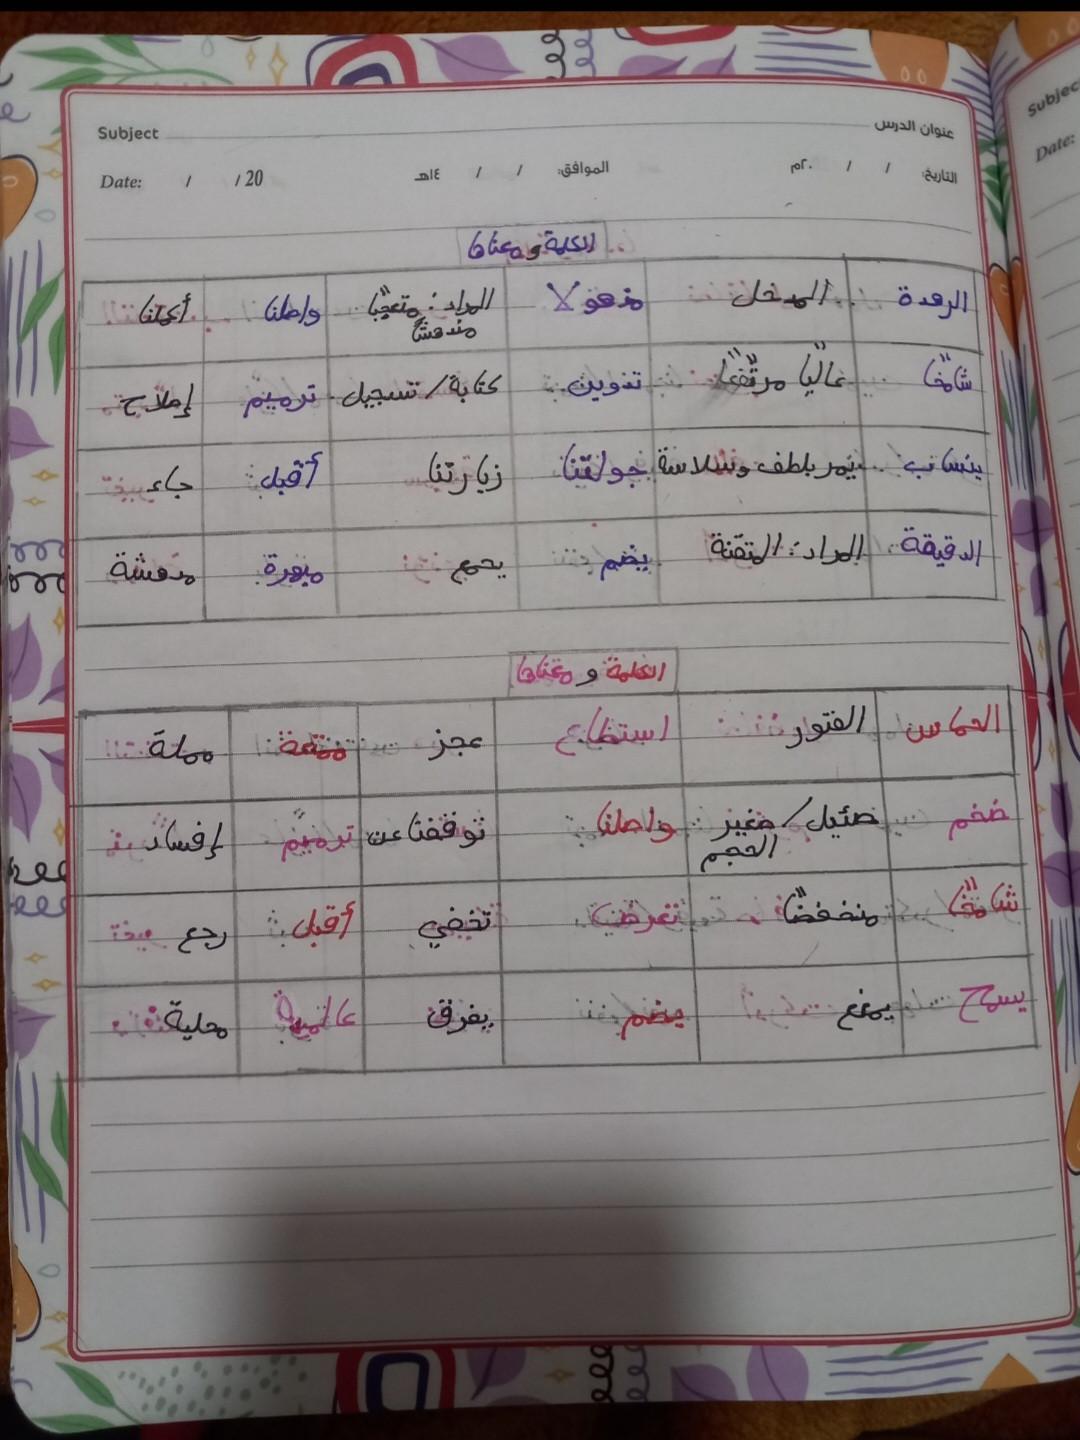 عنوان الدرس Subject
التاريخ: / / ٢٠م الموافق: / / ١٤هـ Date: / / 20
الكلمة ومعناها
الردهة المدخل مذهولا المراد: متعجبًا مندهشًا واصلنا أكملنا
شامخًا عاليًا مرتفعًا تدوين كتابة/تسجيل ترميم إصلاح
ينساب يمر بلطف وسلاسة جولتنا زيارتنا أقبل جاء
الدقيقة المراد: المتقنة يضم يجمع مبهرة مدهشة
الكلمة و معناها
الحماس الفتور استطاع عجز ممتعة مملة
ضخم ضئيل/صغير الحجم واصلنا توقفنا عن ترميم إفساد
شامخًا منخفضًا تعرض تخفي أقبل رجع
يسمح يمنع يضم يفرق عالمية محلية
Subject
Date: